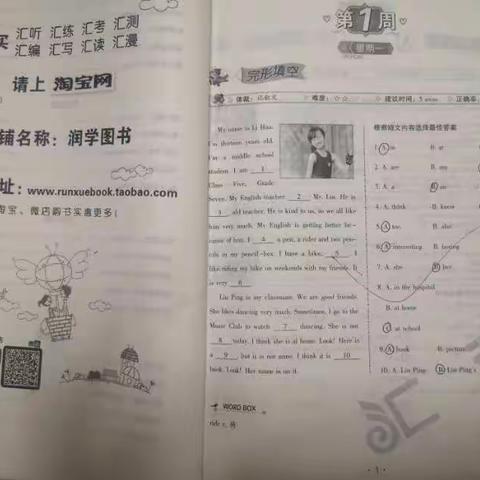 汇听 汇练 汇考 汇测
汇编 汇写 汇读 汇漫
请上 淘宝网
铺名称：润学图书
址：www.runxuebook.taobao.com
淘宝、微店购书实惠更多！
第1周
星期一
完形填空
体裁：记叙文 难度：☆☆ 建议时间：5 正确率
My name is Li Hua.
I'm thirteen years old.
I'm a middle school
student. I am 1
Class Five, Grade
Seven. My English teacher 2 Mr. Liu. He is
3 old teacher. He is kind to us, so we all like
him very much. My English is getting better be-
cause of him. I 4 a pen, a ruler and two pen-
cils in my pencil-box. I have a bike. 5 I
like riding my bike on weekends with my friends. It
is very 6
Liu Ping is my classmate. We are good friends.
She likes dancing very much. Sometimes, I go to the
Music Club to watch 7 dancing. She is not
8 today. I think she is at home. Look! Here is
a 9 but it is not mine. I think it is 10
book. Look! Her name is on it.
WORD BOX
ride v. 骑
根据短文内容选择最佳答案
1. A. in B. at
2. A. are B. am
3. A. a B. an
4. A. think B. know
5. A. too. B. also
6. A. interesting B. boring
7. A. she B. her
8. A. in the hospital
B. at home
C. at school
9. A. book B. picture
10. A. Liu Ping B. Liu Ping's
1
汇